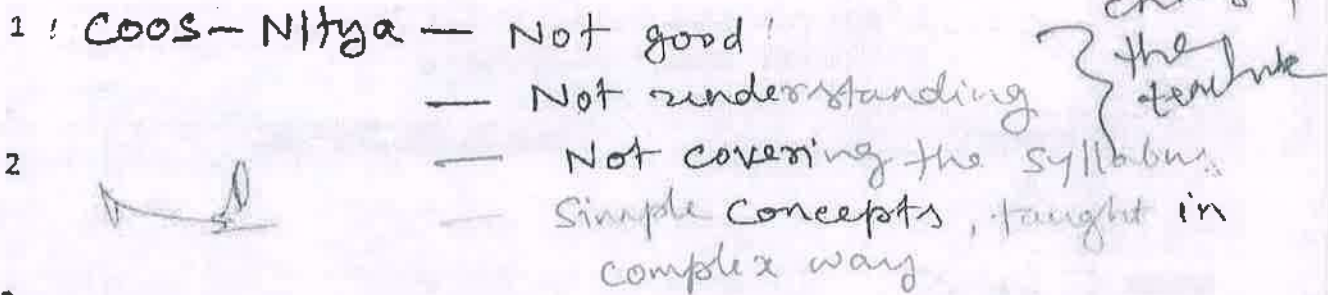 1 : Coos - Nitya — Not good
— Not understanding
} the
2 — Not covering the syllabus
— Simple concepts, taught in
complex way